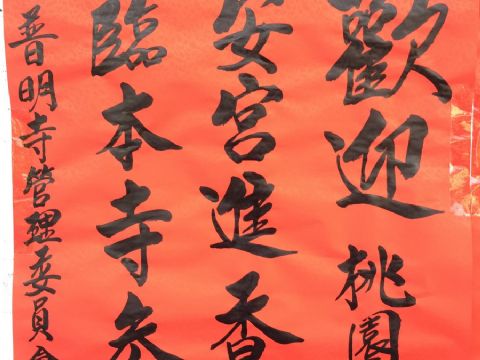 歡迎桃園
安宮進香
臨本寺参
普明寺管理委員會